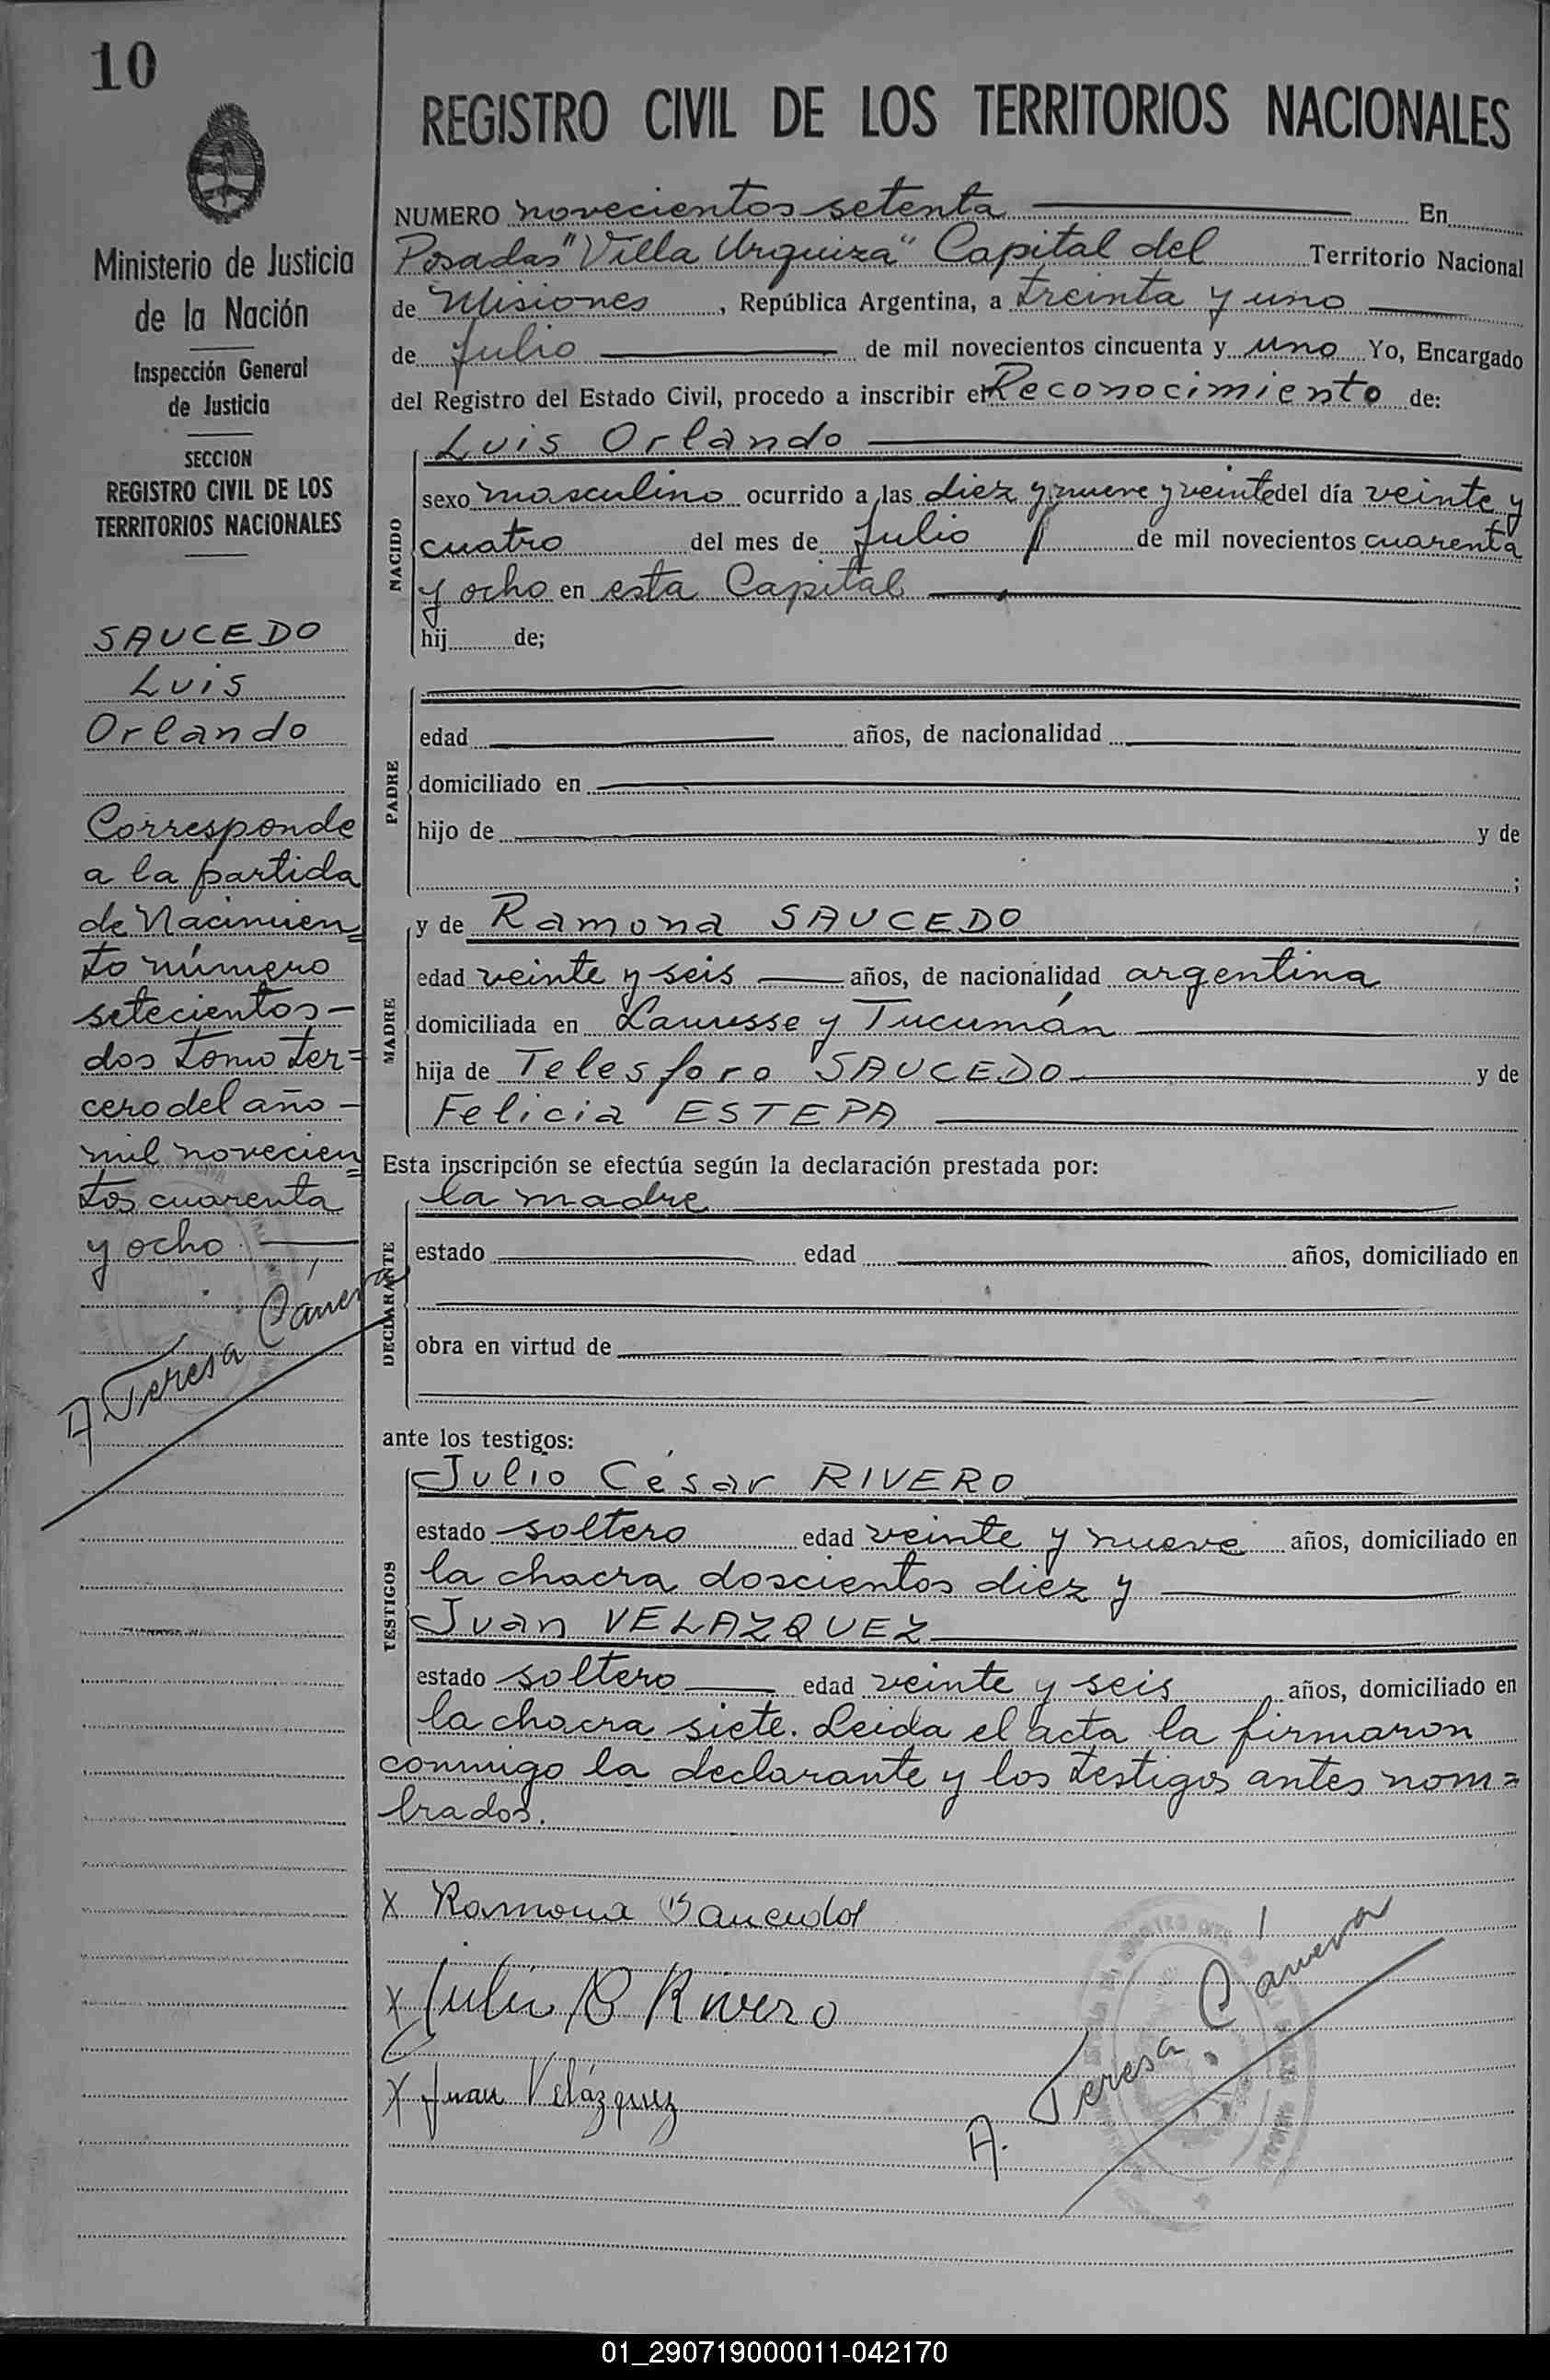 10
REGISTRO CIVIL DE LOS TERRITORIOS NACIONALES
Ministerio de Justicia
de la Nación
Inspección General
de Justicia
SECCION
REGISTRO CIVIL DE LOS
TERRITORIOS NACIONALES
SAUCEDO
Luis
Orlando
Corresponde
a la partida
de Nacimien=
to número
setecientos-
dos tomo ter=
cero del año-
mil novecien=
tos cuarenta
y ocho.
A. Teresa Canera
NUMERO novecientos setenta En
Posadas "Villa Urquiza" Capital del Territorio Nacional
de Misiones, República Argentina, a treinta y uno
de Julio de mil novecientos cincuenta y uno Yo, Encargado
del Registro del Estado Civil, procedo a inscribir el Reconocimiento de:
NACIDO
Luis Orlando
sexo masculino ocurrido a las diez y nueve y veinte del día veinte y
cuatro del mes de Julio de mil novecientos cuarenta
y ocho en esta Capital
hij de;
PADRE
edad años, de nacionalidad
domiciliado en
hijo de y de
;
MADRE
y de Ramona SAUCEDO
edad veinte y seis años, de nacionalidad argentina
domiciliada en Lanusse y Tucumán
hija de Telesforo SAUCEDO y de
Felicia ESTEPA
Esta inscripción se efectúa según la declaración prestada por:
DECLARANTE
la madre
estado edad años, domiciliado en
obra en virtud de
ante los testigos:
TESTIGOS
Julio César RIVERO
estado soltero edad veinte y nueve años, domiciliado en
la chacra doscientos diez y
Juan VELAZQUEZ
estado soltero edad veinte y seis años, domiciliado en
la chacra siete. Leida el acta la firmaron
conmigo la declarante y los testigos antes nom=
brados.
x Ramona Saucedo
x Julio C Rivero
x Juan Velázquez
A. Teresa Canera
01_290719000011-042170